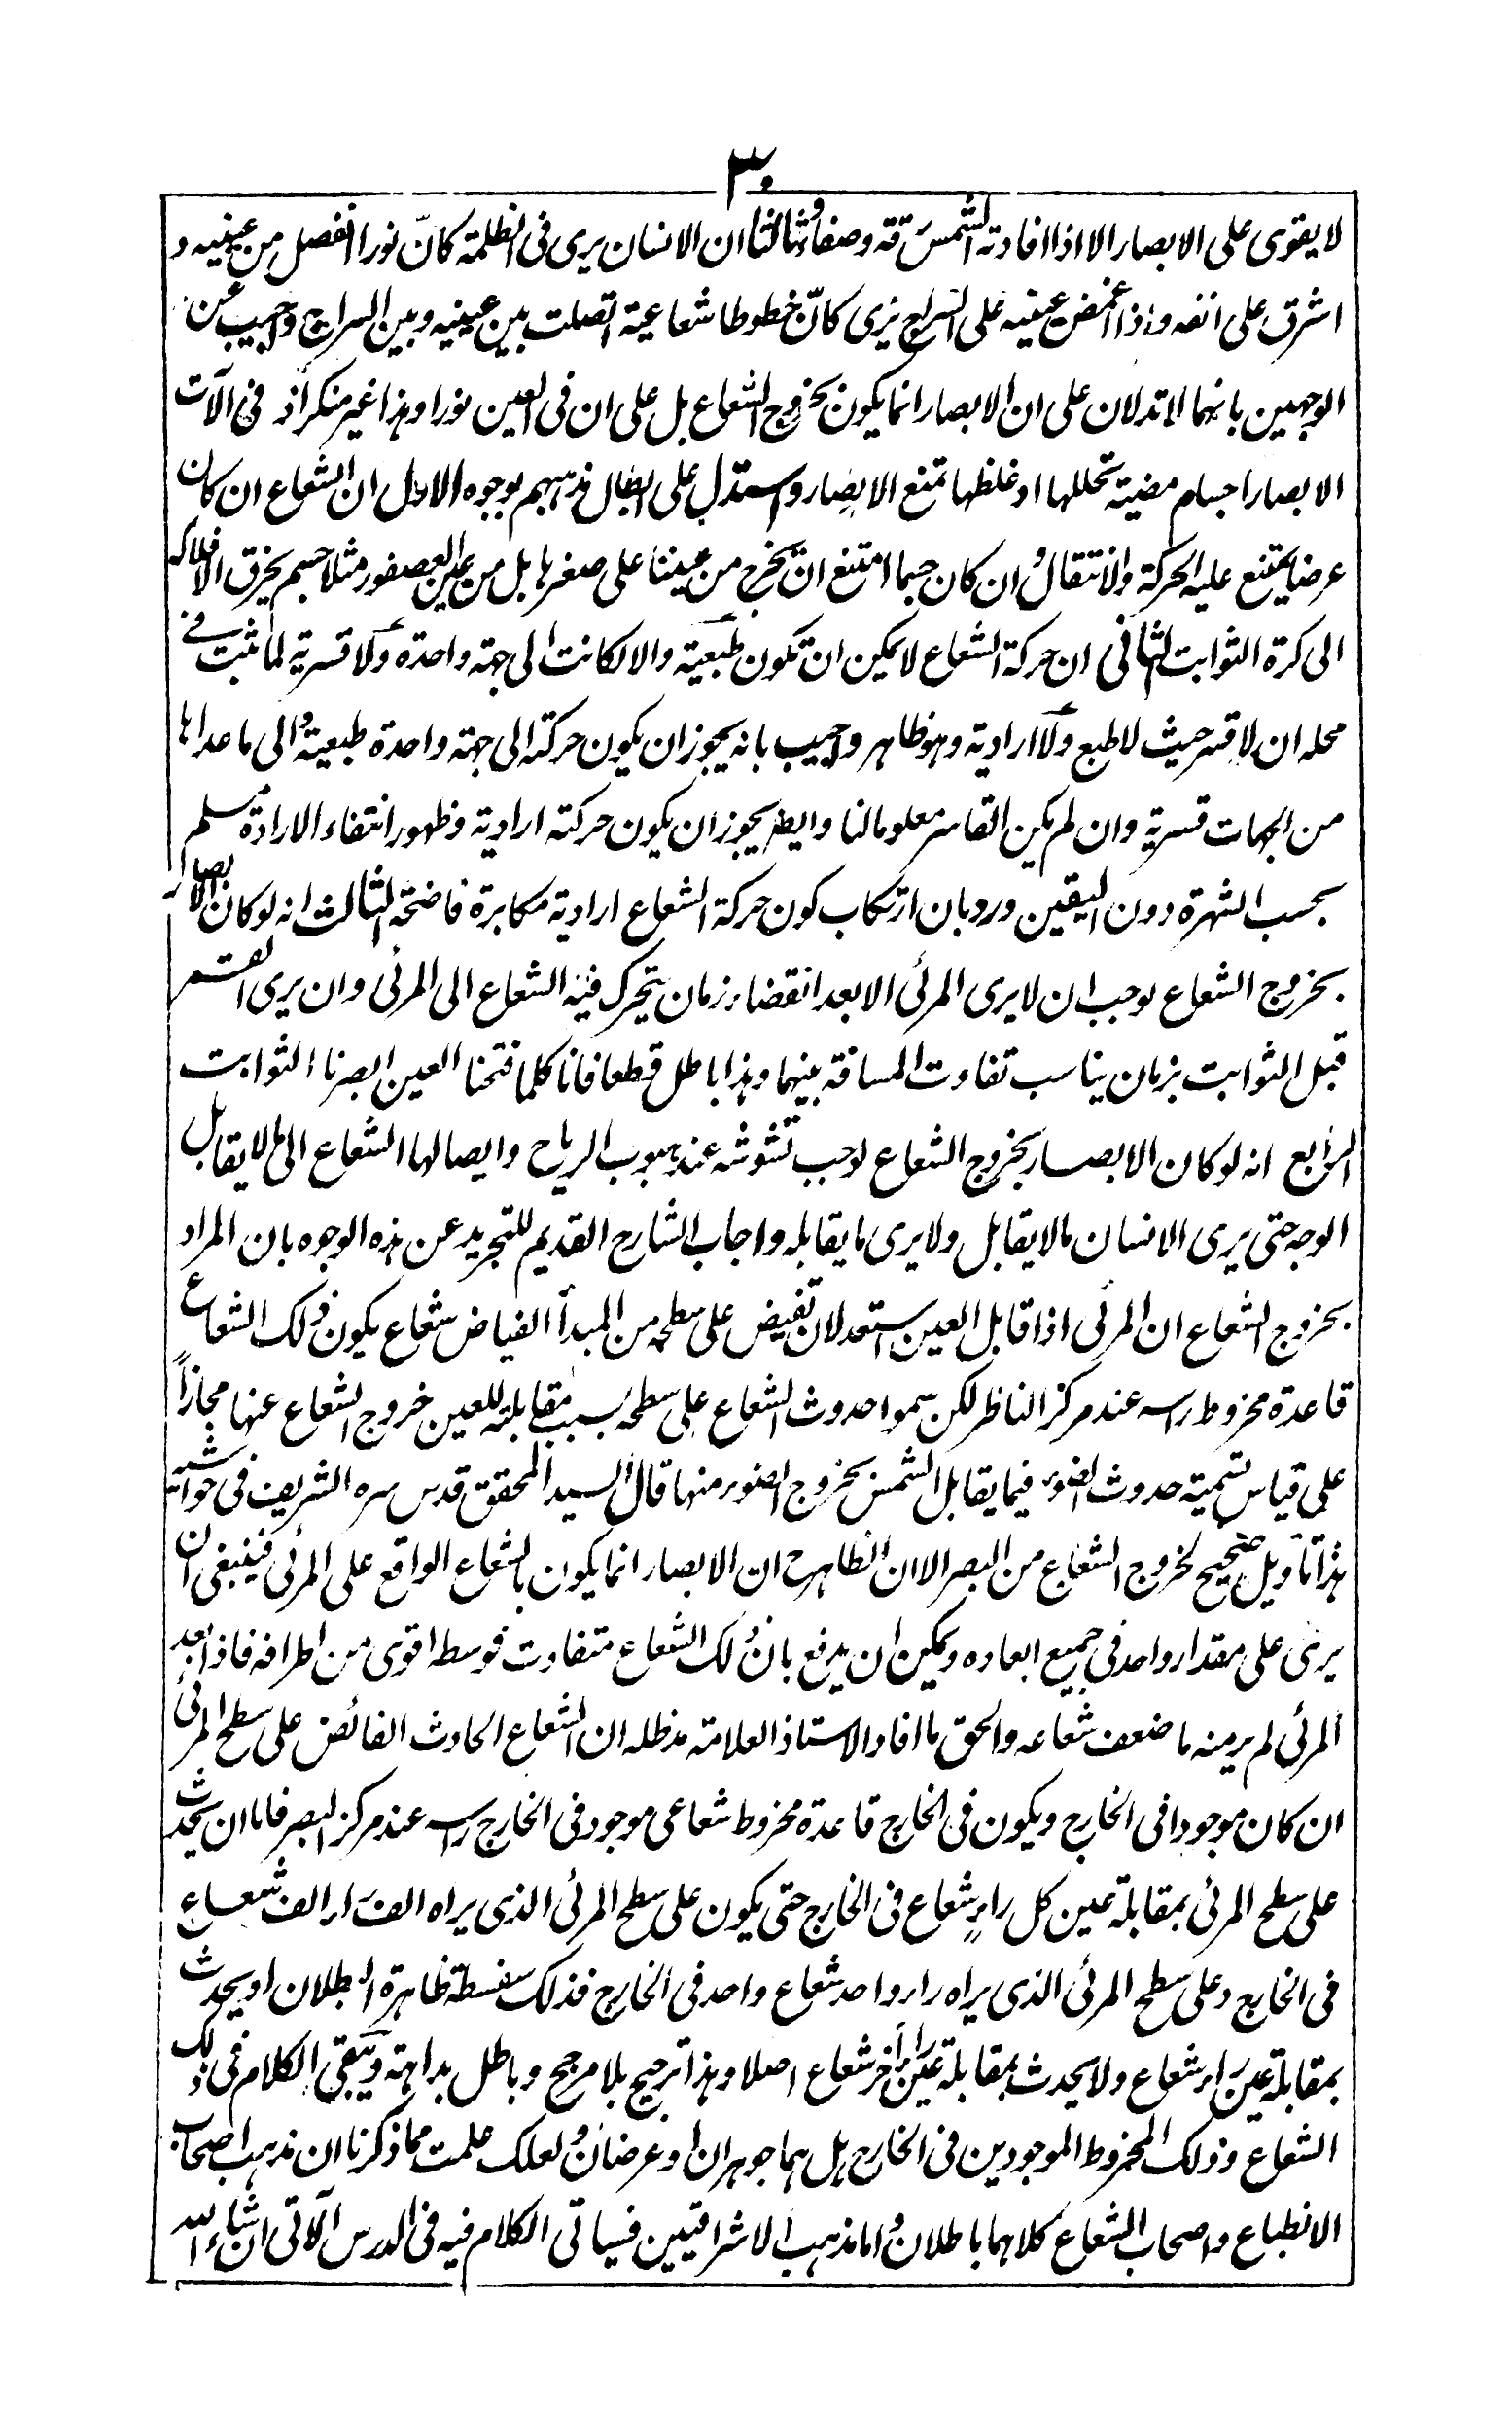 ۳۰
لا يقوى على الابصار الا اذا افادته الشمس رقة وصفاء وثالثا ان الانسان يرى فى الظلمة كانّ نورا انفصل من عينيه و
اشرق على انفه واذا اغمض عينيه على السراج يرى كانّ خطوطا شعاعية اتصلت بين عينيه وبين السراج واجيب عن
الوجهين بانهما لا تدلان على ان الابصار انما يكون بخروج الشعاع بل على ان فى العين نورا وهذا غير منكر اذ فى آلات
الابصار اجسام مضيئة تحللها او غلظها تمنع الابصار واستدل على ابطال مذهبهم بوجوه الاول ان الشعاع ان كان
عرضا يمتنع عليه الحركة والانتقال وان كان جسما امتنع ان يخرج من عيننا على صغرها بل من عين العصفور مثلا جسم يخرق الافلاك
الى كرة الثوابت الثانى ان حركة الشعاع لا يمكن ان تكون طبعية والا لكانت الى جهة واحدة ولا قسرية لما ثبت فى
محله ان لا قسر حيث لا طبع ولا ارادية وهو ظاهر واجيب بانه يجوز ان يكون حركته الى جهة واحدة طبعية والى ما عداها
من الجهات قسرية وان لم يكن القاسر معلوما لنا وايضا يجوز ان يكون حركته ارادية وظهور انتفاء الارادة مسلم
بحسب الشهرة دون اليقين ورد بان ارتكاب كون حركة الشعاع ارادية مكابرة فاضحة الثالث انه لو كان الابصار
بخروج الشعاع لوجب ان لا يرى المرئى الا بعد انقضاء زمان يتحرك فيه الشعاع الى المرئى وان يرى القمر
قبل الثوابت بزمان يناسب تفاوت المسافة بينهما وهذا باطل قطعا فانا كلما فتحنا العين ابصرنا الثوابت
الرابع انه لو كان الابصار بخروج الشعاع لوجب تشوشه عند هبوب الرياح وايصالها الشعاع الى ما لا يقابل
الوجه حتى يرى الانسان ما لا يقابل ولا يرى ما يقابله واجاب الشارح القديم للتجريد عن هذه الوجوه بان المراد
بخروج الشعاع ان المرئى اذا قابل العين استعد لان تفيض على سطحه من المبدأ الفياض شعاع يكون ذلك الشعاع
قاعدة مخروط راسه عند مركز الناظر لكن سموا حدوث الشعاع على سطحه بسبب مقابلته للعين خروج الشعاع عنها مجازاً
على قياس تسمية حدوث الضوء فيما يقابل الشمس بخروج الضوء منها قال السيد المحقق قدس سره الشريف فى حواشيه
هذا تاويل صحيح لخروج الشعاع من البصر الا ان الظاهر ح ان الابصار انما يكون بالشعاع الواقع على المرئى فينبغى ان
يرى على مقدار واحد فى جميع ابعاده ويمكن ان يدفع بان ذلك الشعاع متفاوت فوسطه اقوى من اطرافه فاذا بعد
المرئى لم ير منه ما ضعف شعاعه والحق ما افاد الاستاذ العلامة مد ظله ان الشعاع الحادث الفائض على سطح المرئى
ان كان موجودا فى الخارج ويكون فى الخارج قاعدة مخروط شعاعى موجود فى الخارج راسه عند مركز البصر فاما ان يحدث
على سطح المرئى بمقابلة عين كل راءٍ شعاع فى الخارج حتى يكون على سطح المرئى الذى يراه الف راء الف شعاع
فى الخارج وعلى سطح المرئى الذى يراه راء واحد شعاع واحد فى الخارج فذلك سفسطة ظاهرة البطلان او يحدث
بمقابلة عين راء شعاع ولا يحدث بمقابلة عين راء آخر شعاع اصلا وهذا ترجيح بلا مرجح وباطل بداهة ويبقى الكلام فى ذلك
الشعاع وذلك المخروط الموجودين فى الخارج هل هما جوهران او عرضان ولعلك علمت مما ذكرنا ان مذهب اصحاب
الانطباع واصحاب الشعاع كلاهما باطلان واما مذهب الاشراقيين فسياتى الكلام فيه فى الدرس الآتى ان شاء الله